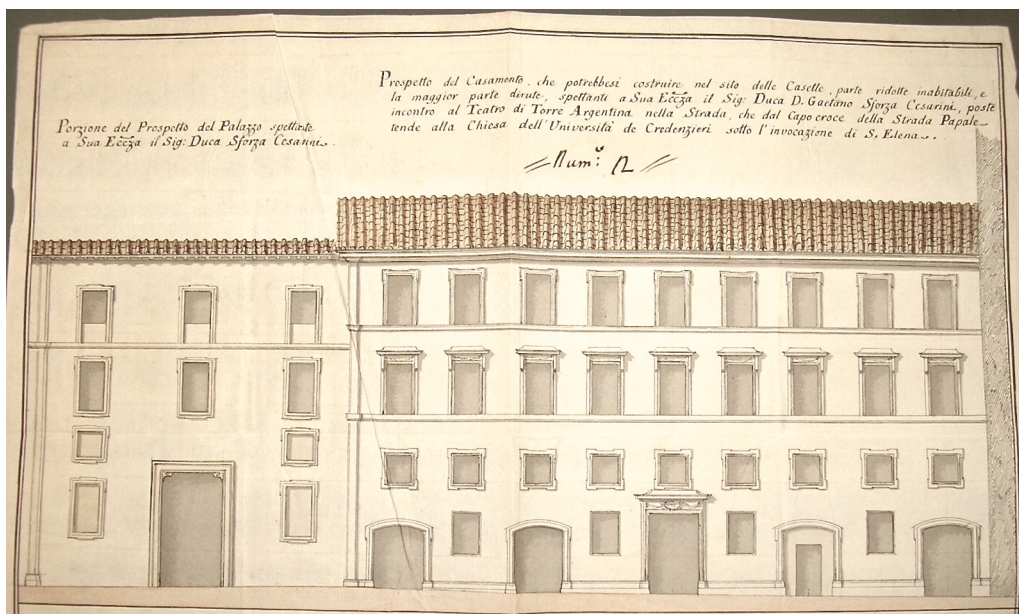 Porzione del Prospetto del Palazzo spettante
a Sua Ecc̃za il Sig: Duca Sforza Cesarini.
Prospetto del Casamento, che potrebbesi costruire nel sito delle Casette, parte ridotte inabitabili, e
la maggior parte dirute, spettanti a Sua Ecc̃za il Sig: Duca D. Gaetano Sforza Cesarini, poste
incontro al Teatro di Torre Argentina nella Strada, che dal Capo croce della Strada Papale
tende alla Chiesa dell'Università de Credenzieri sotto l'invocazione di S. Elena.
Num:º